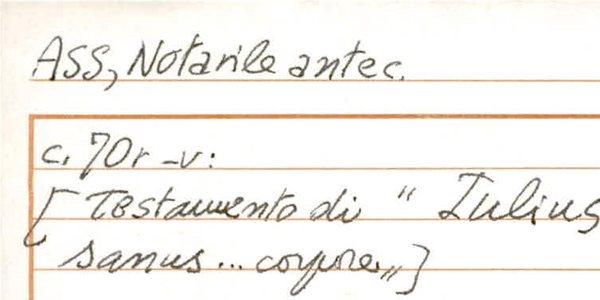 ASS, Notarile antec.
c. 70r-v:
[Testamento di "Iulius
sanus... corpore"]